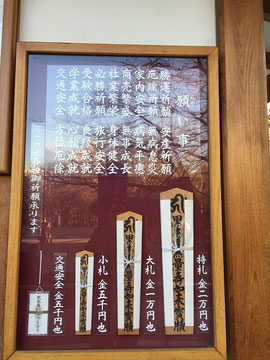 願い事
勝運祈願 安産祈願
厄除祈願 無病息災
家内安全 病気平癒
商売繁盛 無事成長
社業繁栄 身体健全
必勝祈願 旅行安全
受験合格 良縁成就
学業成就 心願成就
交通安全 方位厄除
御祈願承ります
特札 金二万円也
大札 金一万円也
小札 金五千円也
交通安全 金五千円也